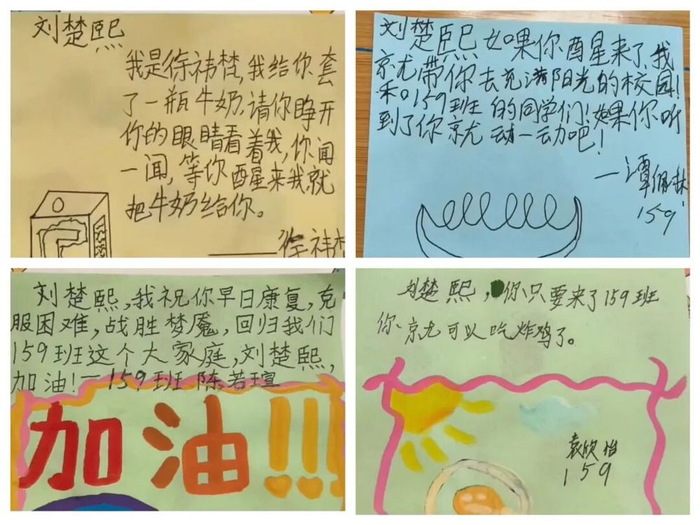 刘楚熙
我是徐祎梵,我给你套
了一瓶牛奶,请你睁开
你的眼睛看着我,你闻
一闻,等你醒来我就
把牛奶给你。
——徐祎梵
刘楚熙如果你醒来了,我
就带你去充满阳光的校园!
和159班的同学们!如果你听
到了你就动一动吧!
—谭
159
刘楚熙,我祝你早日康复,克
服困难,战胜梦魇,回归我们
159班这个大家庭,刘楚熙,
加油!—159班 陈若瑄
加油!!!
刘楚熙,你只要来了159班
你就可以吃炸鸡了。
袁欣怡
159